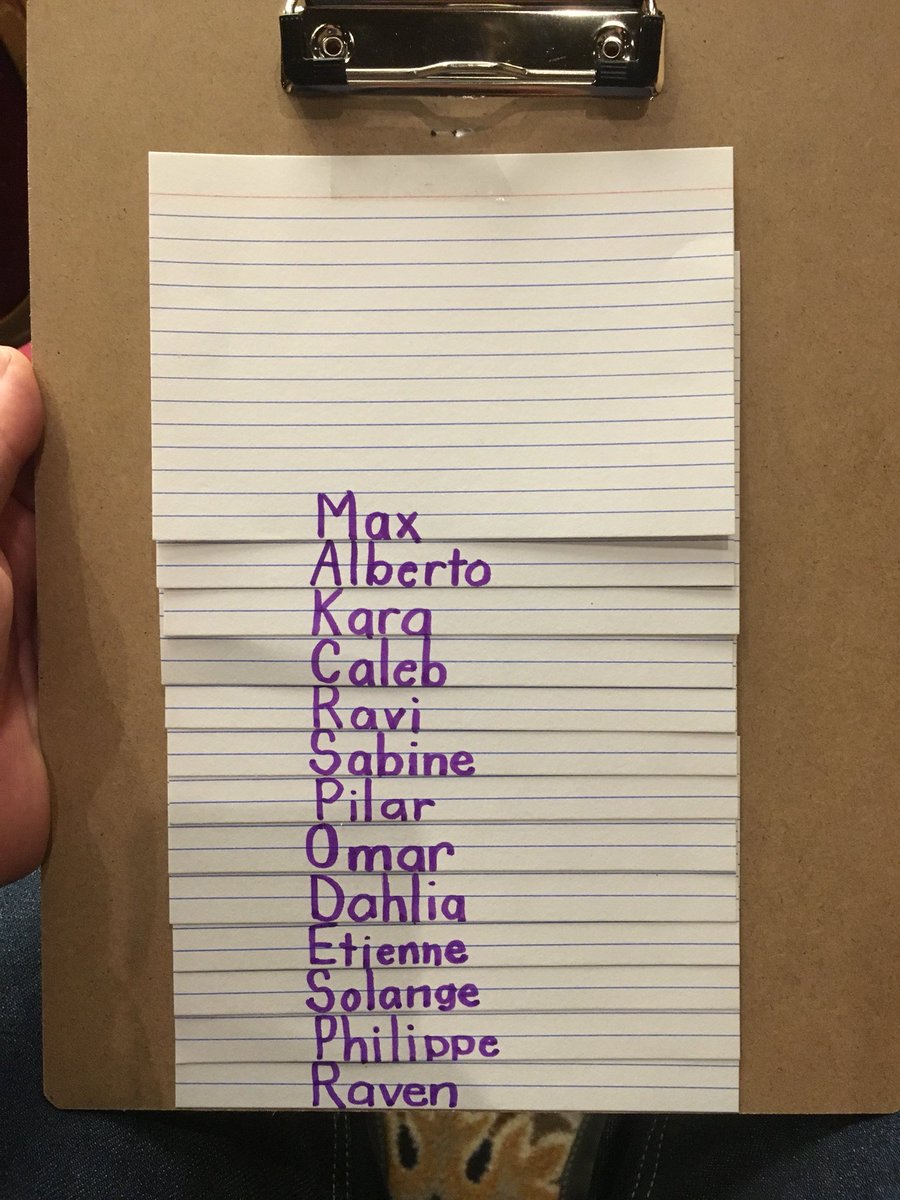 Max
Alberto
Kara
Caleb
Ravi
Sabine
Pilar
Omar
Dahlia
Etienne
Solange
Philippe
Raven